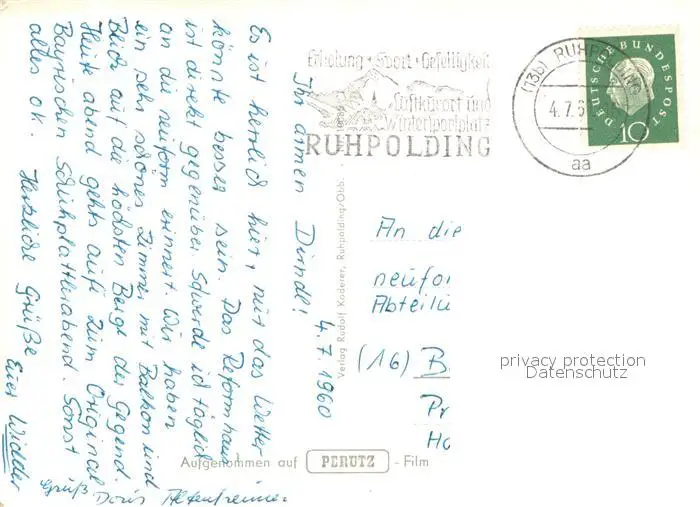 Erholung + Sport + Geselligkeit
Luftkurort und
Wintersportplatz
RUHPOLDING
(13b) RUHPOLDING
4.7.6
aa
DEUTSCHE BUNDESPOST
10
4.7.1960
Ihr armen Dirndl!
Es ist herrlich hier, nur das Wetter
könnte besser sein. Das Reformhaus
ist direkt gegenüber. Sowerde ich täglich
an die neuform erinnert. Wir haben
ein sehr schönes Zimmer mit Balkon und
Blick auf die höchsten Berge der Gegend.
Heute abend gehts aufi zum Original
Bayrischen Schuhplattlerabend. Sonst
alles ok.
Herzliche Grüße
Euer Widder
Gruß Doris
Verlag Rudolf Koderer, Ruhpolding/Obb.
An die
neufor
Abteilu
(16) B
Pr
Ho
privacy protection
Datenschutz
Aufgenommen auf PERUTZ - Film